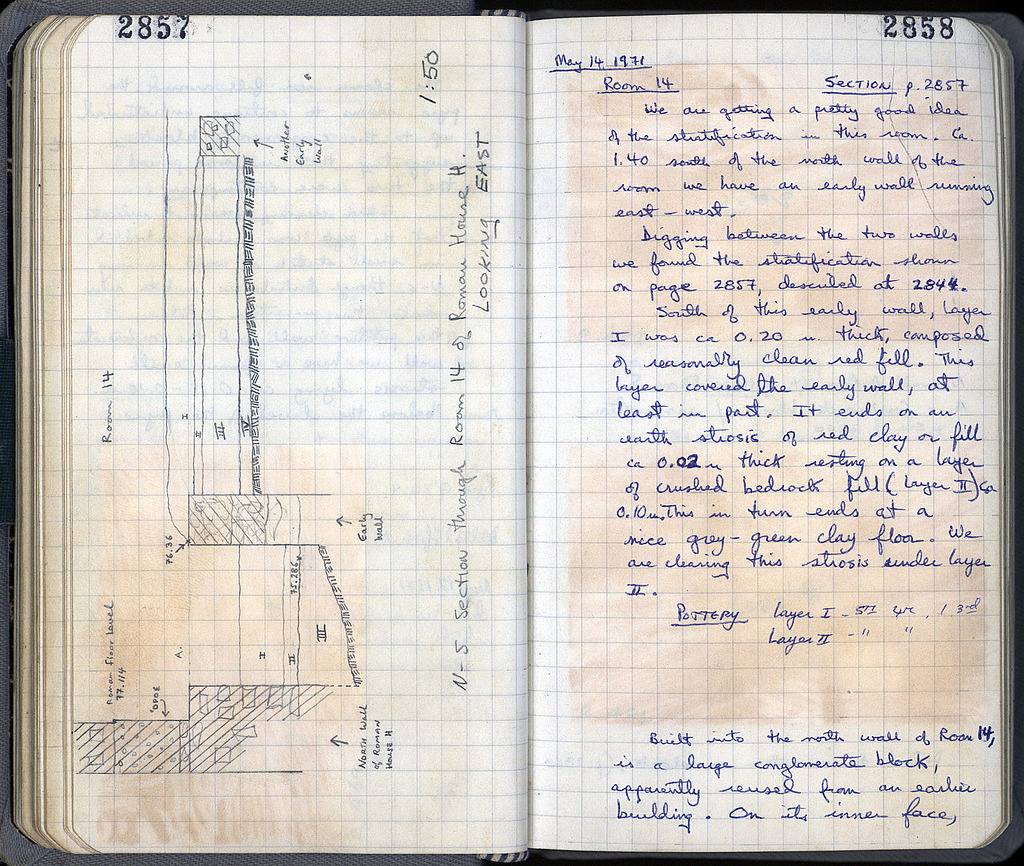 2857
1:50
N-S Section through Room 14 of Roman House H.
LOOKING EAST
Another
Early
Wall
Room 14
I
II
III
IV
76.36
Early
Wall
75.286
Roman floor level
77.114
A.
I
II
III
NORTH WALL
of ROMAN
HOUSE H
2858
May 14, 1971
Room 14 SECTION p. 2857
We are getting a pretty good idea
of the stratification in this room. Ca.
1.40 south of the north wall of the
room we have an early wall running
east - west.
Digging between the two walls
we found the stratification shown
on page 2857, described at 2844.
South of this early wall, layer
I was ca 0.20 m. thick, composed
of reasonably clean red fill. This
layer covered the early wall, at
least in part. It ends on an
earth strosis of red clay or fill
ca 0.02 m thick resting on a layer
of crushed bedrock fill (Layer II) ca
0.10m. This in turn ends at a
nice grey-green clay floor. We
are clearing this strosis under layer
II.
POTTERY Layer I - 5th 4th, 1 3rd
Layer II - " "
Built into the north wall of Room 14,
is a large conglomerate block,
apparently reused from an earlier
building. On its inner face,